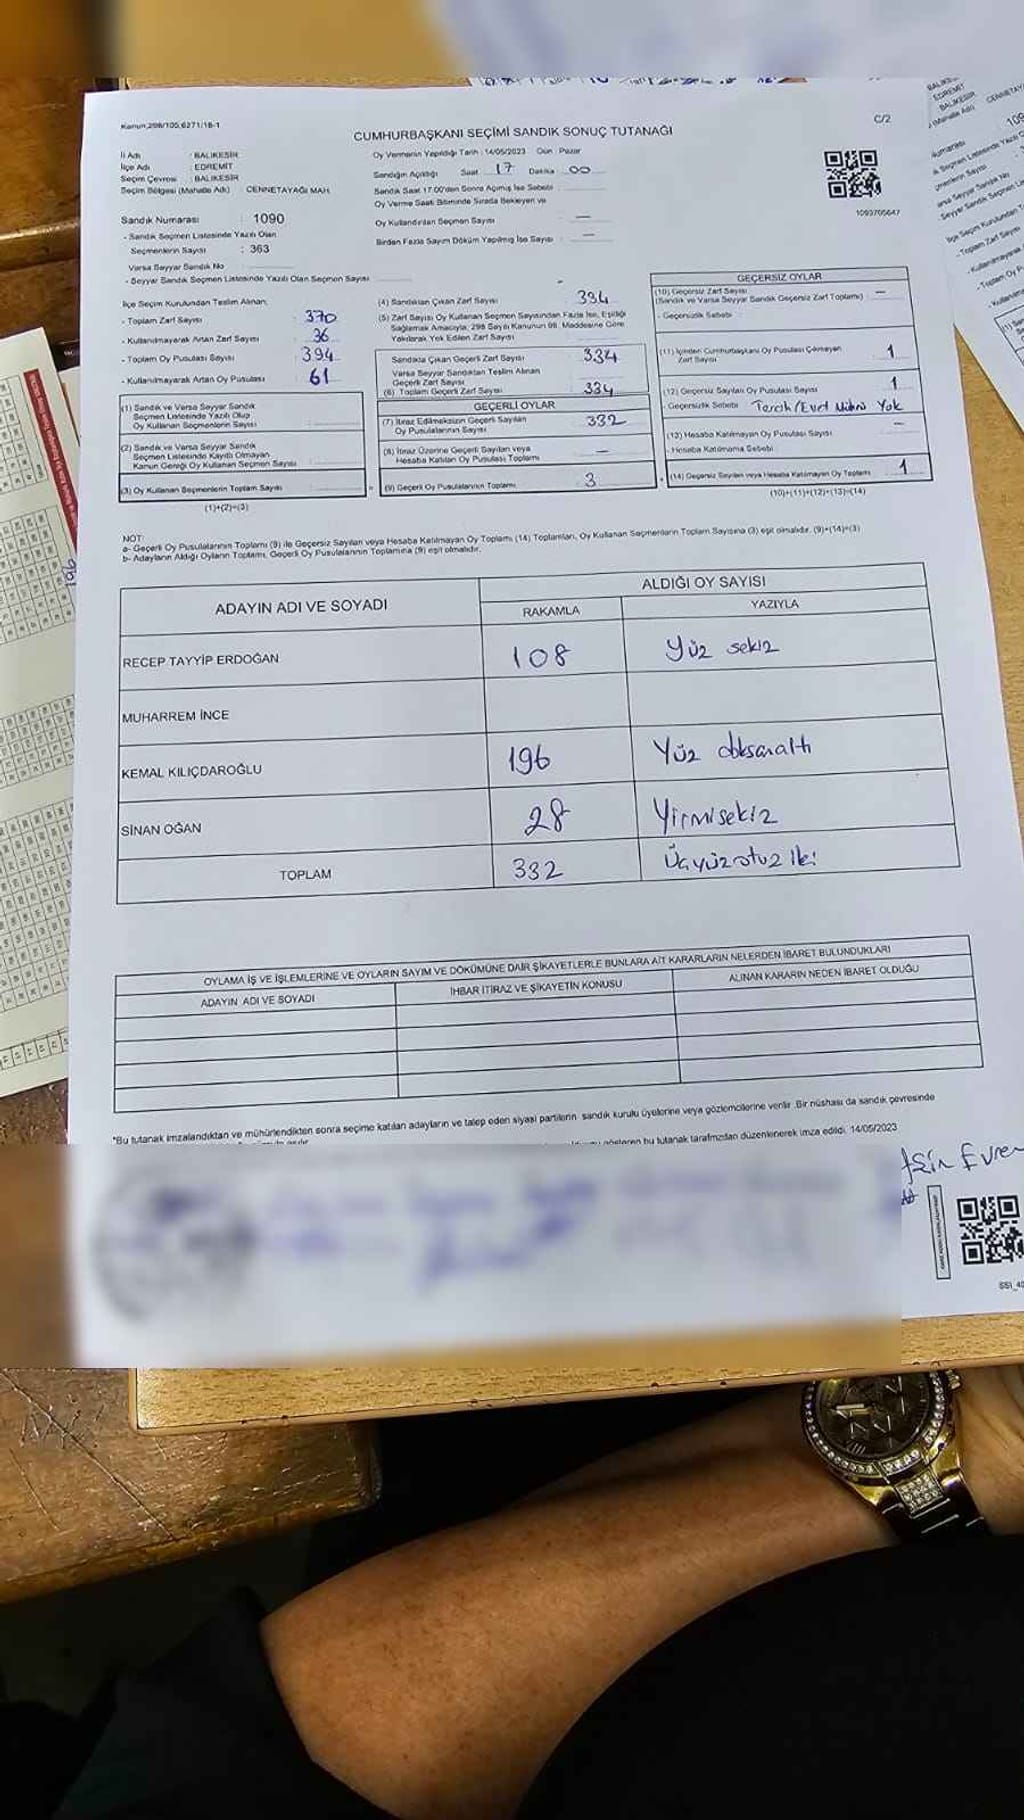 Kanun:298/105,6271/18-1
C/2
CUMHURBAŞKANI SEÇİMİ SANDIK SONUÇ TUTANAĞI
İl Adı : BALIKESİR
İlçe Adı : EDREMİT
Seçim Çevresi : BALIKESİR
Seçim Bölgesi (Mahalle Adı) : CENNETAYAĞI MAH.
Oy Vermenin Yapıldığı Tarih : 14/05/2023 Gün : Pazar
Sandığın Açıldığı Saat 17 Dakika 00
Sandık Saat 17.00'den Sonra Açılmış İse Sebebi
Oy Verme Saati Bitiminde Sırada Bekleyen ve
Oy Kullandırılan Seçmen Sayısı : —
Birden Fazla Sayım Döküm Yapılmış İse Sayısı : —
1093705647
Sandık Numarası : 1090
- Sandık Seçmen Listesinde Yazılı Olan
Seçmenlerin Sayısı : 363
Varsa Seyyar Sandık No
- Seyyar Sandık Seçmen Listesinde Yazılı Olan Seçmen Sayısı
İlçe Seçim Kurulundan Teslim Alınan;
- Toplam Zarf Sayısı : 370
- Kullanılmayarak Artan Zarf Sayısı : 36
- Toplam Oy Pusulası Sayısı : 394
- Kullanılmayarak Artan Oy Pusulası : 61
(1) Sandık ve Varsa Seyyar Sandık
Seçmen Listesinde Yazılı Olup
Oy Kullanan Seçmenlerin Sayısı
(2) Sandık ve Varsa Seyyar Sandık
Seçmen Listesinde Kayıtlı Olmayan
Kanun Gereği Oy Kullanan Seçmen Sayısı
(3) Oy Kullanan Seçmenlerin Toplam Sayısı
(1)+(2)=(3)
(4) Sandıktan Çıkan Zarf Sayısı : 334
(5) Zarf Sayısı Oy Kullanan Seçmen Sayısından Fazla İse, Eşitliği
Sağlamak Amacıyla, 298 Sayılı Kanunun 98. Maddesine Göre
Yakılarak Yok Edilen Zarf Sayısı
Sandıkta Çıkan Geçerli Zarf Sayısı : 334
Varsa Seyyar Sandıktan Teslim Alınan
Geçerli Zarf Sayısı
(6) Toplam Geçerli Zarf Sayısı : 334
GEÇERLİ OYLAR
(7) İtiraz Edilmeksizin Geçerli Sayılan
Oy Pusulalarının Sayısı : 332
(8) İtiraz Üzerine Geçerli Sayılan veya
Hesaba Katılan Oy Pusulası Toplamı : —
(9) Geçerli Oy Pusulalarının Toplamı : 3
GEÇERSİZ OYLAR
(10) Geçersiz Zarf Sayısı : —
(Sandık ve Varsa Seyyar Sandık Geçersiz Zarf Toplamı)
- Geçersizlik Sebebi
(11) İçinden Cumhurbaşkanı Oy Pusulası Çıkmayan
Zarf Sayısı : 1
(12) Geçersiz Sayılan Oy Pusulası Sayısı : 1
- Geçersizlik Sebebi : Tercih/Evet Mührü Yok
(13) Hesaba Katılmayan Oy Pusulası Sayısı : —
- Hesaba Katılmama Sebebi
(14) Geçersiz Sayılan veya Hesaba Katılmayan Oy Toplamı : 1
(10)+(11)+(12)+(13)=(14)
NOT:
a- Geçerli Oy Pusulalarının Toplamı (9) ile Geçersiz Sayılan veya Hesaba Katılmayan Oy Toplamı (14) Toplamları, Oy Kullanan Seçmenlerin Toplam Sayısına (3) eşit olmalıdır. (9)+(14)=(3)
b- Adayların Aldığı Oyların Toplamı, Geçerli Oy Pusulalarının Toplamına (9) eşit olmalıdır.
ADAYIN ADI VE SOYADI
ALDIĞI OY SAYISI
RAKAMLA YAZIYLA
RECEP TAYYİP ERDOĞAN 108 Yüz sekiz
MUHARREM İNCE
KEMAL KILIÇDAROĞLU 196 Yüz doksanaltı
SİNAN OĞAN 28 Yirmisekiz
TOPLAM 332 Üçyüzotuz iki
OYLAMA İŞ VE İŞLEMLERİNE VE OYLARIN SAYIM VE DÖKÜMÜNE DAİR ŞİKAYETLERLE BUNLARA AİT KARARLARIN NELERDEN İBARET BULUNDUKLARI
ADAYIN ADI VE SOYADI İHBAR İTİRAZ VE ŞİKAYETİN KONUSU ALINAN KARARIN NEDEN İBARET OLDUĞU
*Bu tutanak imzalandıktan ve mühürlendikten sonra seçime katılan adayların ve talep eden siyasi partilerin sandık kurulu üyelerine veya gözlemcilerine verilir. Bir nüshası da sandık çevresinde
gösteren bu tutanak tarafımızdan düzenlenerek imza edildi. 14/05/2023
Evren
196